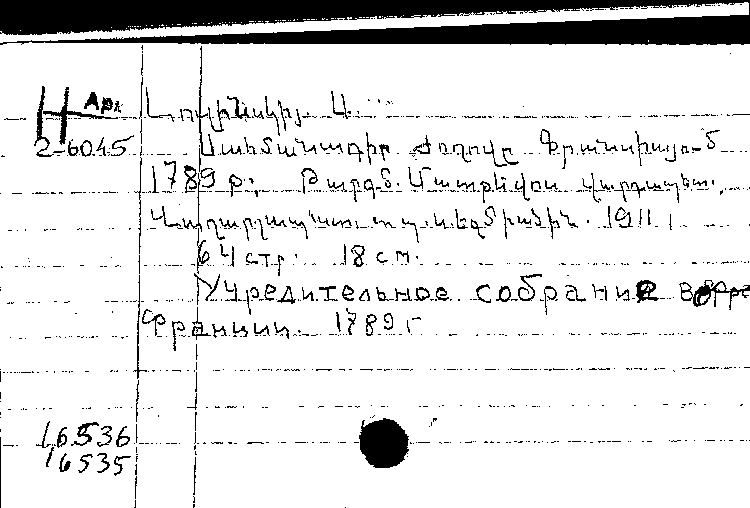 Н Арм Լուչինսկիյ. Ա.
2-6045 Սահմանադիր Ժողովը Ֆրանսիայում
1789 թ.; Թարգմ. Մատթէվոս վարդապետ.,
Վաղարշապատ. տպ. ս. Էջմիածին. 1911,
64 стр. 18 см.
Учредительное собрание во
Франции. 1789 г
16536
16535